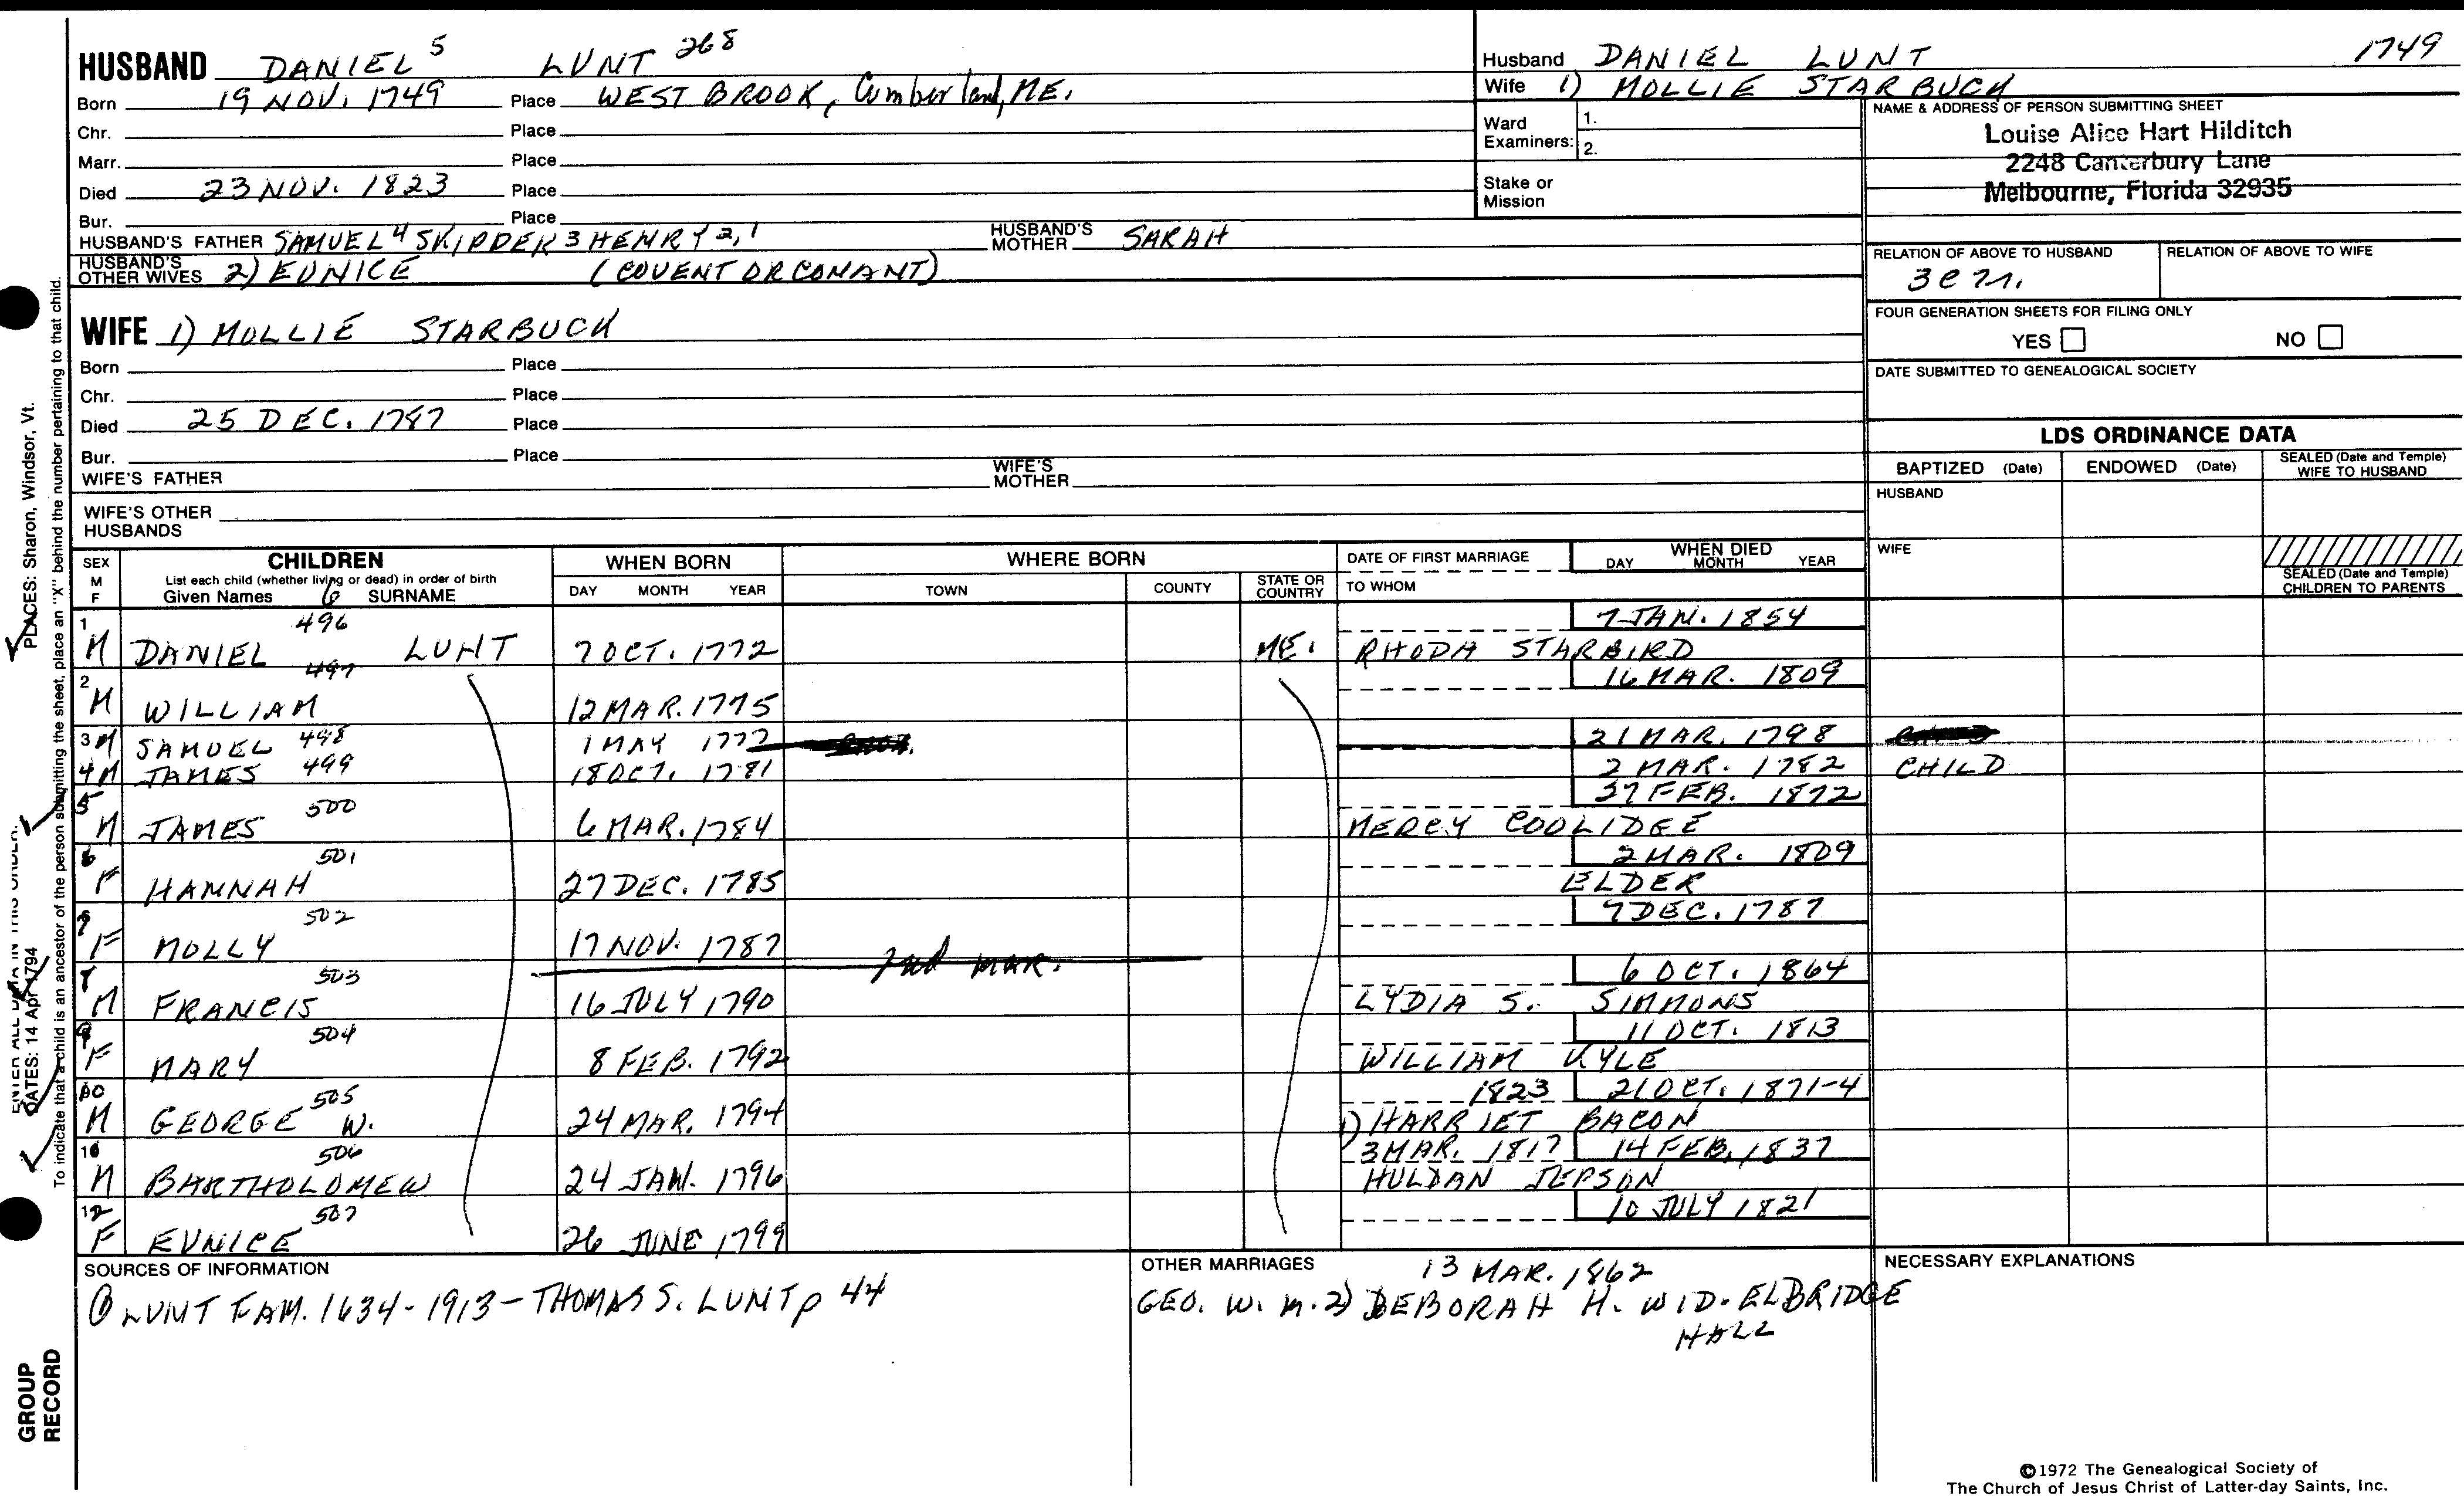 HUSBAND DANIEL 5 LUNT 268
Born 19 NOV. 1749 Place WEST BROOK, Cumberland, ME.
Chr. Place
Marr. Place
Died 23 NOV. 1823 Place
Bur. Place
HUSBAND'S FATHER SAMUEL 4 SKIPPER 3 HENRY 2, 1 HUSBAND'S MOTHER SARAH
HUSBAND'S OTHER WIVES 2) EUNICE (COVENT OR CONANT)
WIFE 1) MOLLIE STARBUCK
Born Place
Chr. Place
Died 25 DEC. 1787 Place
Bur. Place
WIFE'S FATHER WIFE'S MOTHER
WIFE'S OTHER HUSBANDS
Husband DANIEL LUNT 1749
Wife 1) MOLLIE STARBUCK
Ward Examiners: 1.
2.
Stake or Mission
NAME & ADDRESS OF PERSON SUBMITTING SHEET
Louise Alice Hart Hilditch
2248 Canterbury Lane
Melbourne, Florida 32935
RELATION OF ABOVE TO HUSBAND RELATION OF ABOVE TO WIFE
FOUR GENERATION SHEETS FOR FILING ONLY
YES NO
DATE SUBMITTED TO GENEALOGICAL SOCIETY
LDS ORDINANCE DATA
BAPTIZED (Date) ENDOWED (Date) SEALED (Date and Temple) WIFE TO HUSBAND
HUSBAND
WIFE
SEALED (Date and Temple) CHILDREN TO PARENTS
SEX M F CHILDREN WHEN BORN WHERE BORN DATE OF FIRST MARRIAGE WHEN DIED
List each child (whether living or dead) in order of birth
Given Names 6 SURNAME DAY MONTH YEAR TOWN COUNTY STATE OR COUNTRY TO WHOM DAY MONTH YEAR
1 496 7 JAN. 1854
M DANIEL LUNT 7 OCT. 1772 ME. RHODA STARBIRD
2 497 16 MAR. 1809
M WILLIAM 12 MAR. 1775
3 M SAMUEL 498 1 MAY 1777 21 MAR. 1798
4 M JAMES 499 18 OCT. 1781 2 MAR. 1782 CHILD
5 500 27 FEB. 1872
M JAMES 6 MAR. 1784 MERCY COOLIDGE
6 501 2 MAR. 1809
F HANNAH 27 DEC. 1785 ELDER
502 7 DEC. 1787
F MOLLY 17 NOV. 1787
2nd MAR.
503 6 OCT. 1864
M FRANCIS 16 JULY 1790 LYDIA S. SIMMONS
504 11 OCT. 1813
F MARY 8 FEB. 1792 WILLIAM KYLE
505 1823 21 OCT. 1871-4
M GEORGE W. 24 MAR. 1794 1) HARRIET BACON
506 3 MAR. 1817 14 FEB. 1837
M BARTHOLOMEW 24 JAN. 1796 HULDAN JEPSON
12 507 10 JULY 1821
F EUNICE 26 JUNE 1799
SOURCES OF INFORMATION
LUNT FAM. 1634-1913-THOMAS S. LUNT p 44
OTHER MARRIAGES 13 MAR. 1862
GEO. W. M. 2) DEBORAH H. WID. ELBRIDGE
HALL
NECESSARY EXPLANATIONS
©1972 The Genealogical Society of
The Church of Jesus Christ of Latter-day Saints, Inc.
PLACES: Sharon, Windsor, Vt.
ENTER ALL DATA IN THIS ORDER:
DATES: 14 Apr 1794
To indicate that a child is an ancestor of the person submitting the sheet, place an "X" behind the number pertaining to that child.
GROUP
RECORD